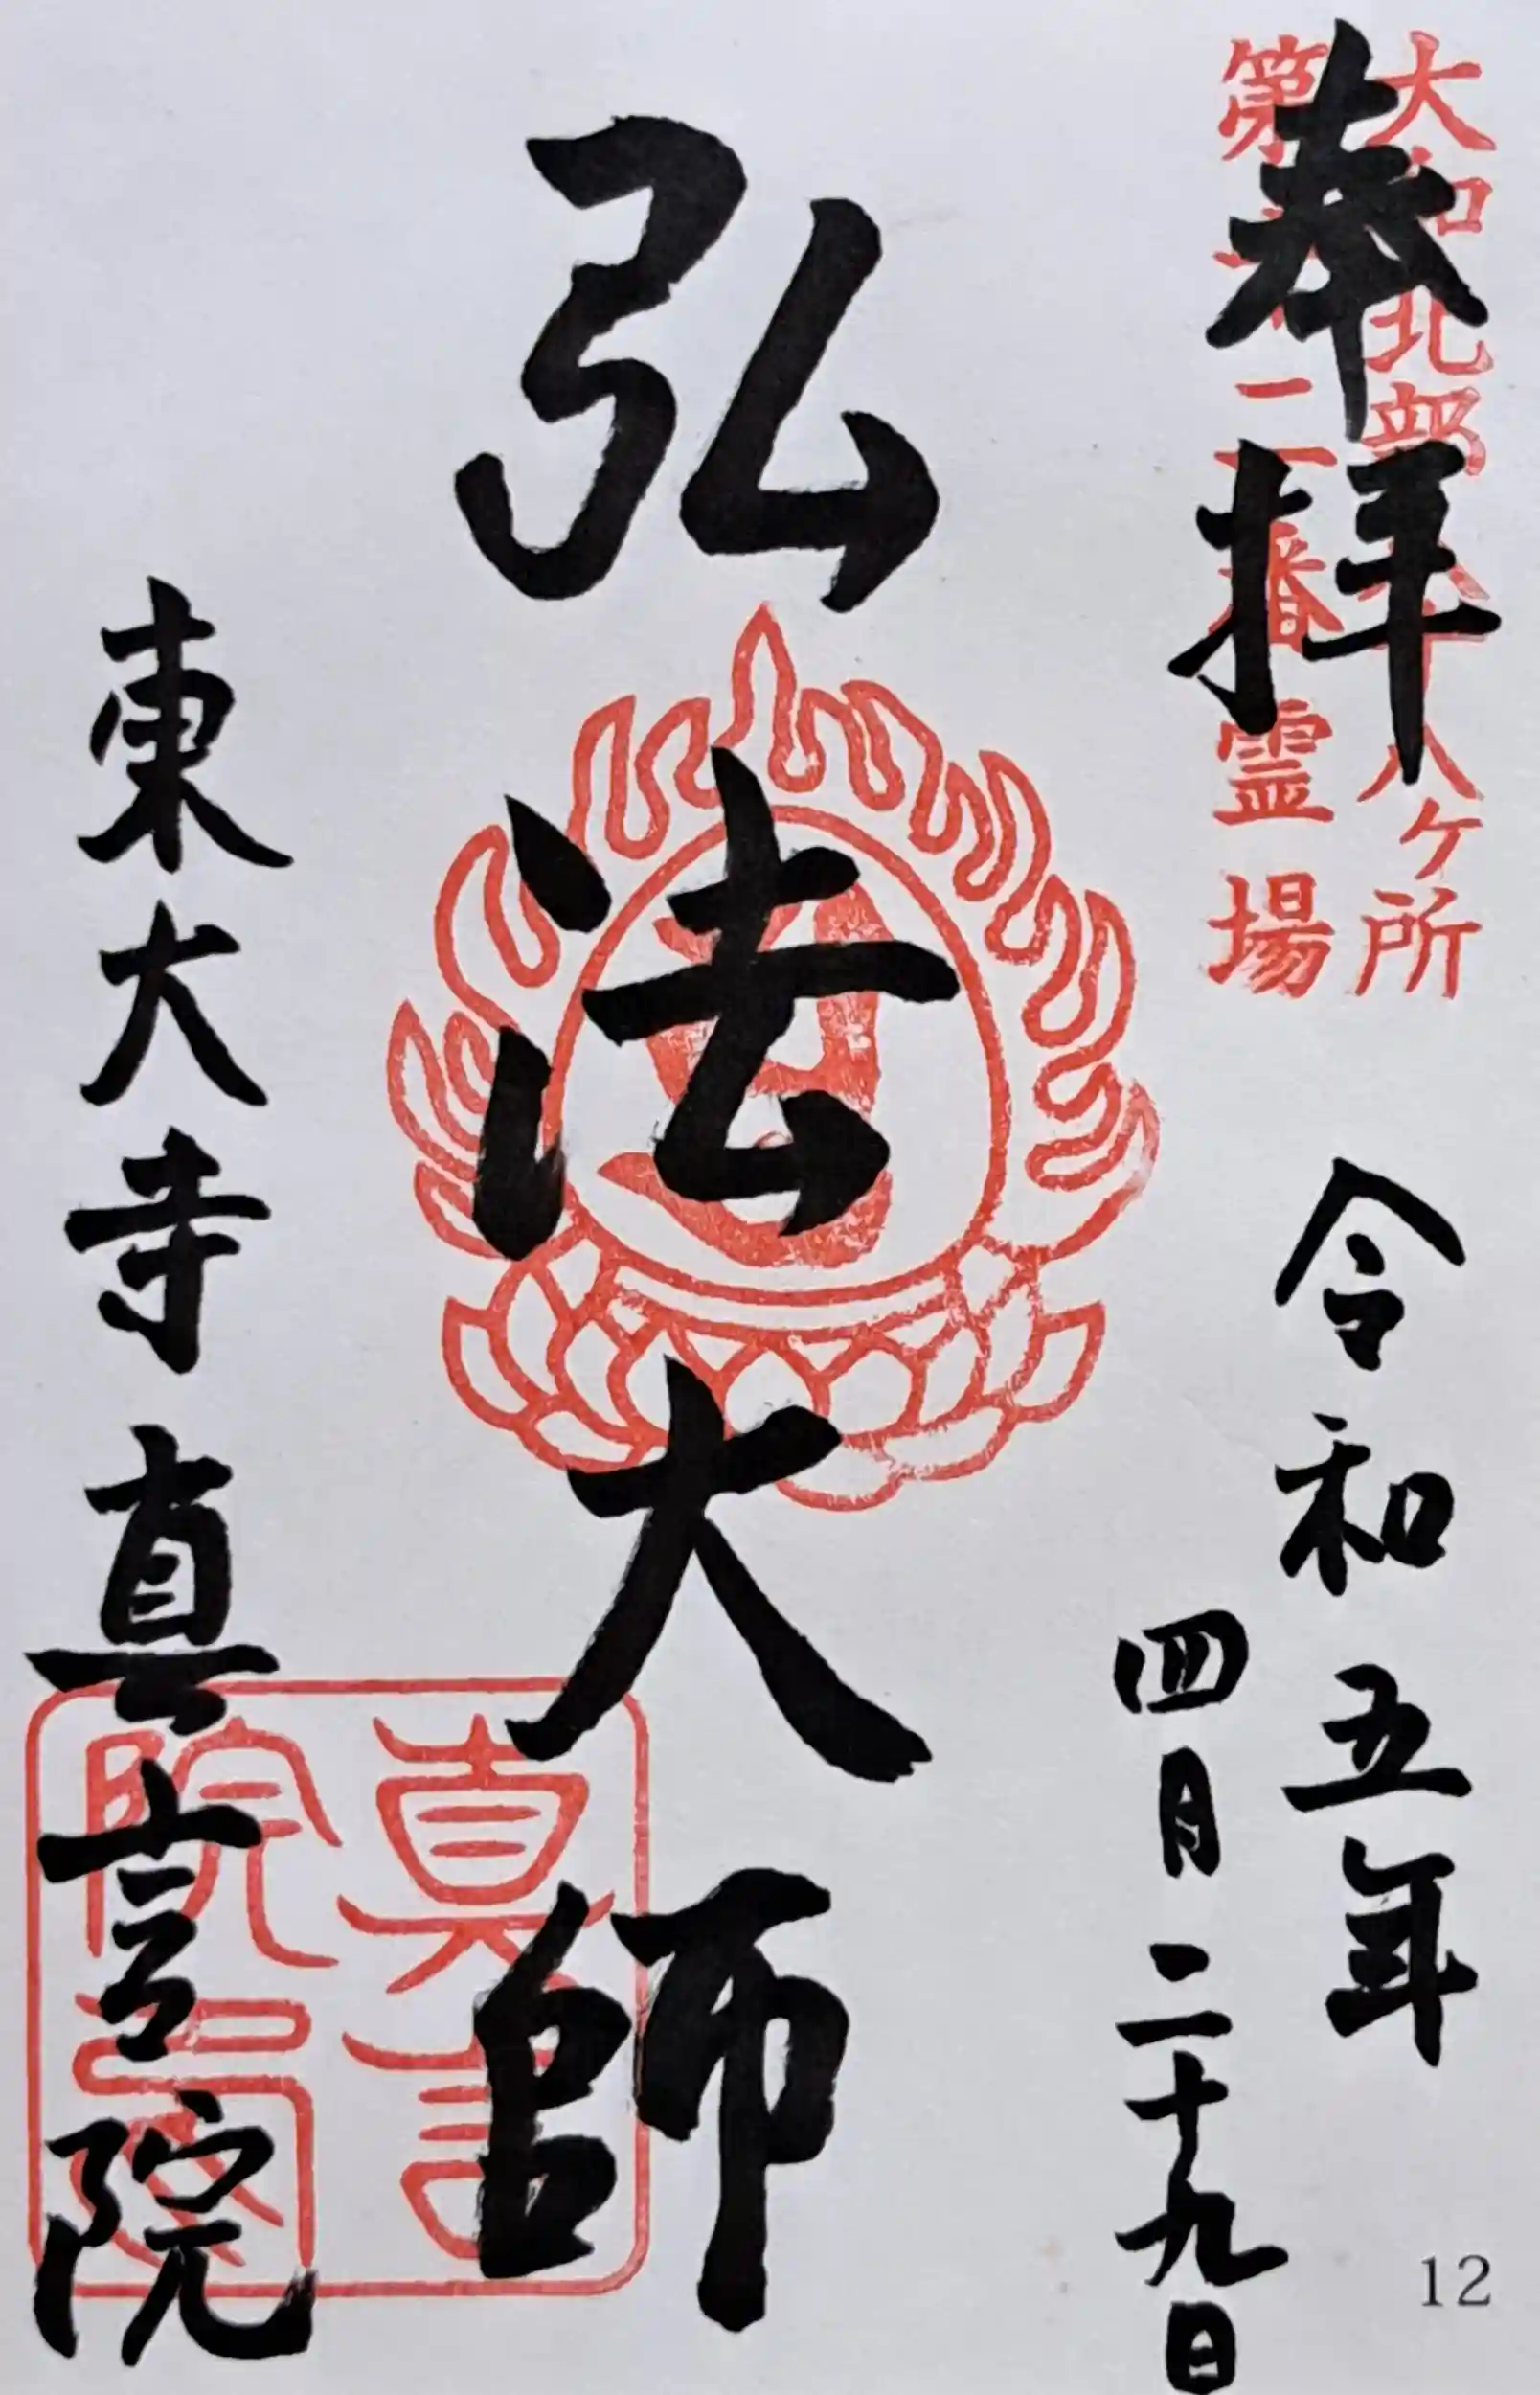 大和北部八十八ヶ所
第十二番霊場
奉拝
令和五年
四月二十九日
弘法大師
東大寺真言院
真言
院
12